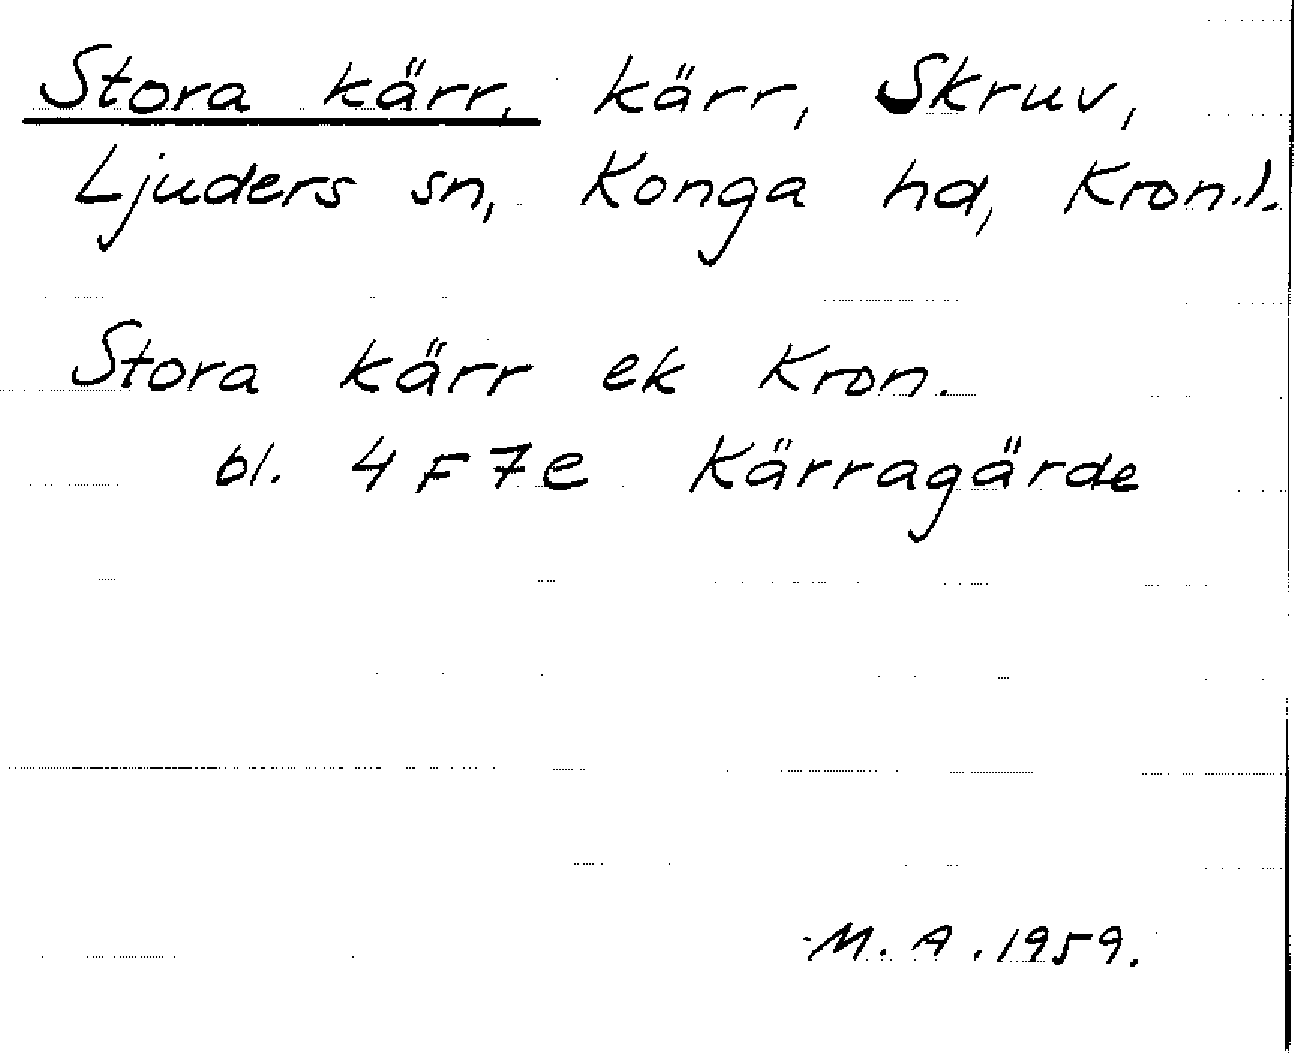 Stora kärr, kärr, Skruv,
Ljuders sn, Konga hd, Kron.l.
Stora kärr ek Kron.
bl. 4F7e Kärragärde
M. A. 1959.